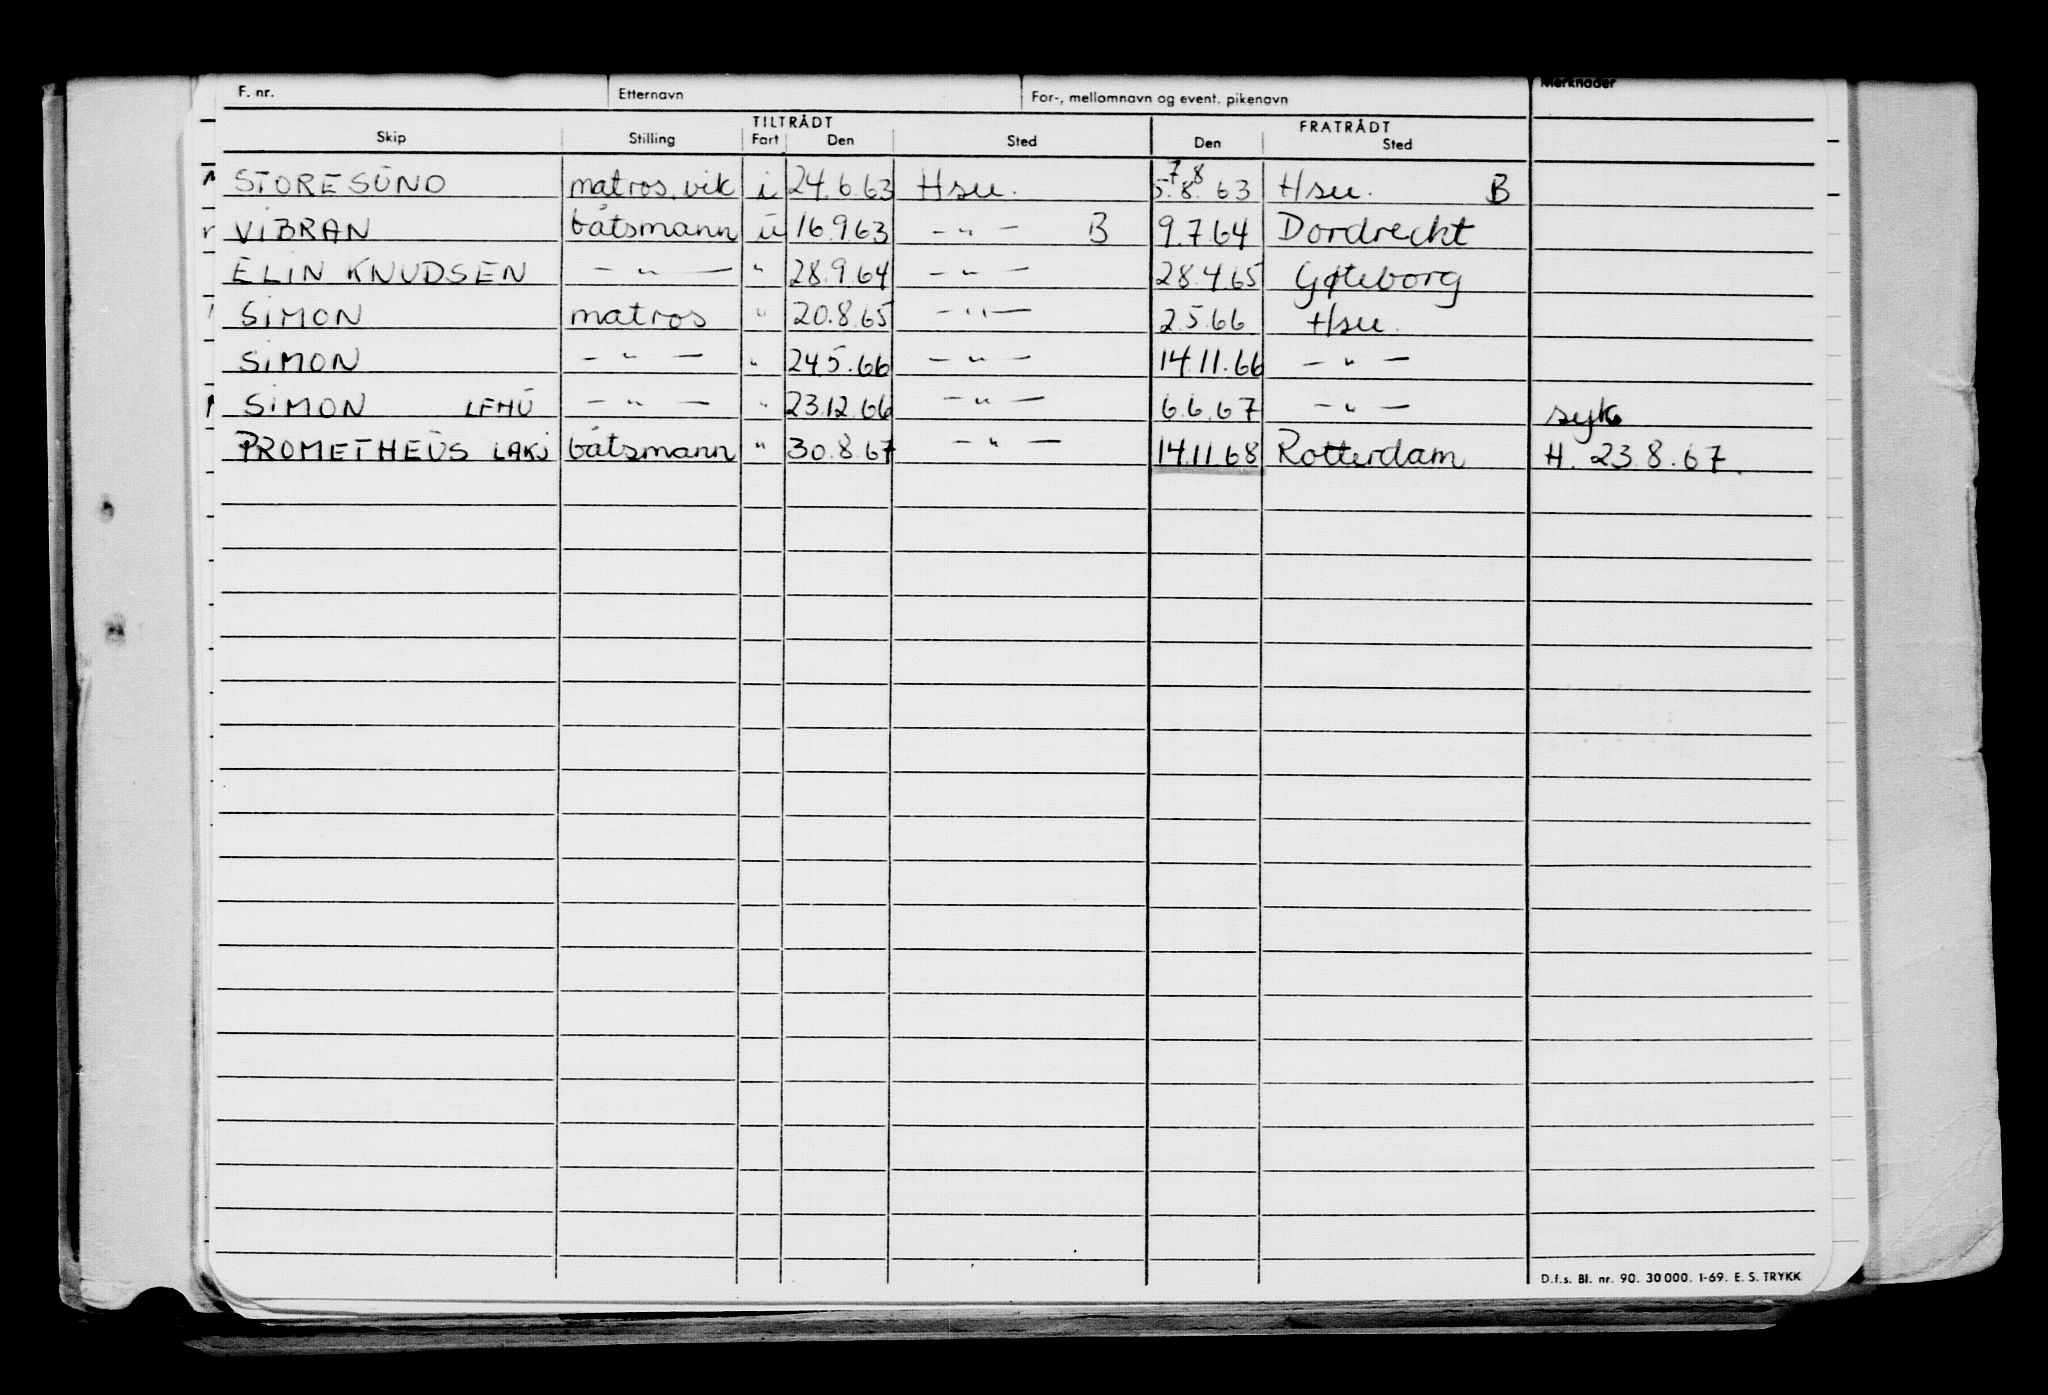 F. nr. Etternavn For-, mellomnavn og event. pikenavn Merknader
TILTRÅDT FRATRÅDT
Skip Stilling Fart Den Sted Den Sted
STORESUND matros.vik i 24.6.63 Hsu. 5.8.63 7 8 Hsu. B
VIBRAN båtsmann u 16.9.63 - " - B 9.7.64 Dordreckt
ELIN KNUDSEN - " - " 28.9.64 - " - 28.4.65 Gøteborg
SIMON matros " 20.8.65 - " - 2.5.66 Hsu.
SIMON - " - " 24.5.66 - " - 14.11.66 - " -
SIMON LFHU - " - " 23.12.66 - " - 6.6.67 - " - syk
PROMETHEUS LAKJ båtsmann " 30.8.67 - " - 14.11.68 Rotterdam H. 23.8.67.
D.f.s. Bl. nr. 90. 30 000. 1-69. E. S. TRYKK